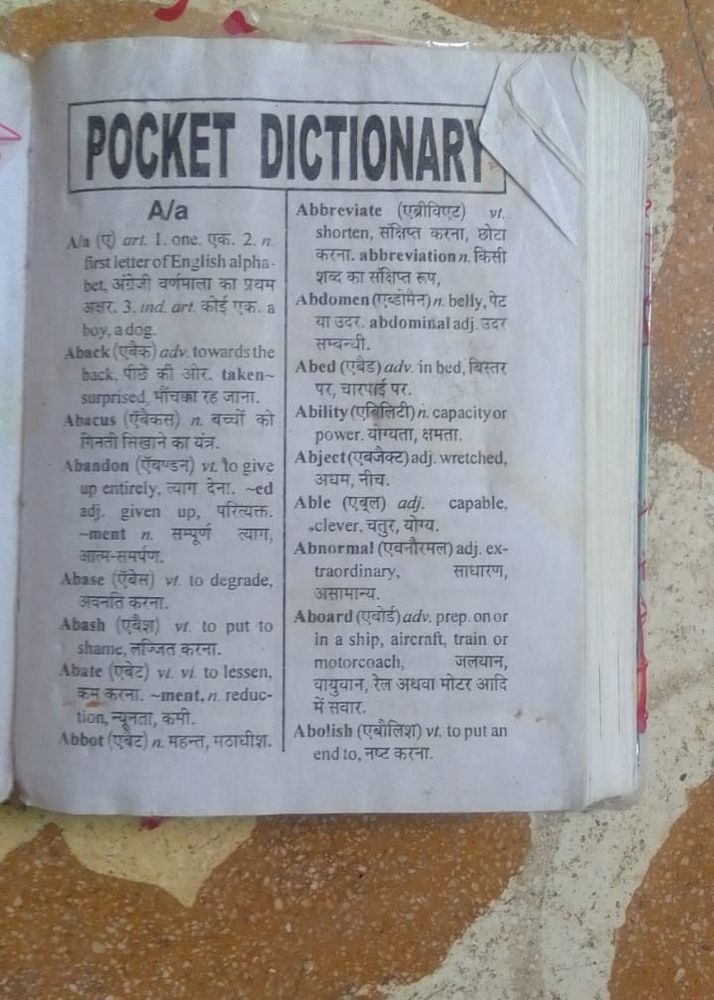 POCKET DICTIONARY
A/a
A/a (ए) art. 1. one. एक. 2. n.
first letter of English alpha-
bet, अंग्रेजी वर्णमाला का प्रथम
अक्षर. 3. ind. art. कोई एक. a
boy, a dog.
Aback (एबैक) adv. towards the
back, पीछे की ओर. taken~
surprised, भौंचक्का रह जाना.
Abacus (ऍबेकस) n. बच्चों को
गिनती सिखाने का यंत्र.
Abandon (ऍबण्डन) vt. to give
up entirely, त्याग देना. ~ed
adj. given up, परित्यक्त.
~ment n. सम्पूर्ण त्याग,
आत्म-समर्पण.
Abase (ऍबेस) vt. to degrade,
अवनति करना.
Abash (एबैश) vt. to put to
shame, लज्जित करना.
Abate (एबेट) vt. vi. to lessen,
कम करना. ~ment, n. reduc-
tion, न्यूनता, कमी.
Abbot (एबॅट) n. महन्त, मठाधीश.
Abbreviate (एब्रीविएट) vt.
shorten, संक्षिप्त करना, छोटा
करना. abbreviation n. किसी
शब्द का संक्षिप्त रूप,
Abdomen (एब्डोमैन) n. belly, पेट
या उदर. abdominal adj. उदर
सम्बन्धी.
Abed (एबैड) adv. in bed, बिस्तर
पर, चारपाई पर.
Ability (एबिलिटी) n. capacity or
power. योग्यता, क्षमता.
Abject (एबजेक्ट) adj. wretched,
अधम, नीच.
Able (एबॅल) adj. capable,
clever. चतुर, योग्य.
Abnormal (एबनौरमल) adj. ex-
traordinary, साधारण,
असामान्य.
Aboard (एबोर्ड) adv. prep. on or
in a ship, aircraft, train or
motorcoach, जलयान,
वायुयान, रेल अथवा मोटर आदि
में सवार.
Abolish (एबौलिश) vt. to put an
end to, नष्ट करना.